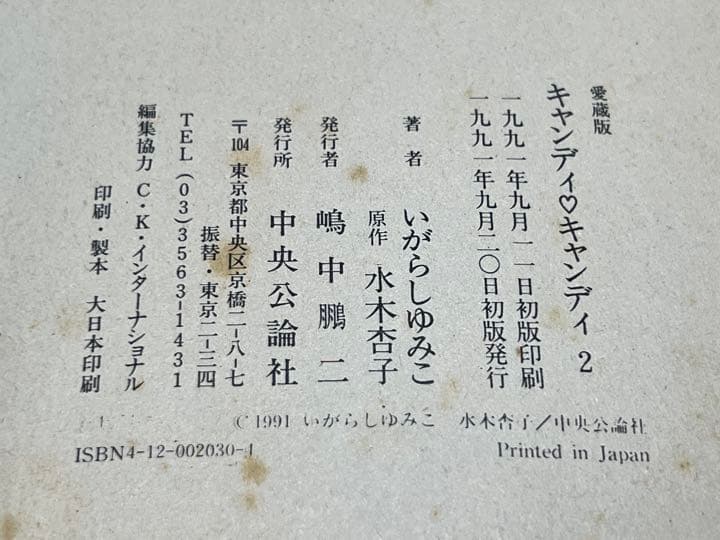 愛蔵版
キャンディ♡キャンディ 2
一九九一年九月一一日初版印刷
一九九一年九月二〇日初版発行
著者 いがらしゆみこ
原作 水木杏子
発行者 嶋中鵬二
発行所 中央公論社
〒104 東京都中央区京橋二-八-七
振替・東京二-三四
TEL(03)3563-1431
編集協力 C・K・インターナショナル
印刷・製本 大日本印刷
© 1991 いがらしゆみこ 水木杏子／中央公論社
ISBN4-12-002030-4
Printed in Japan